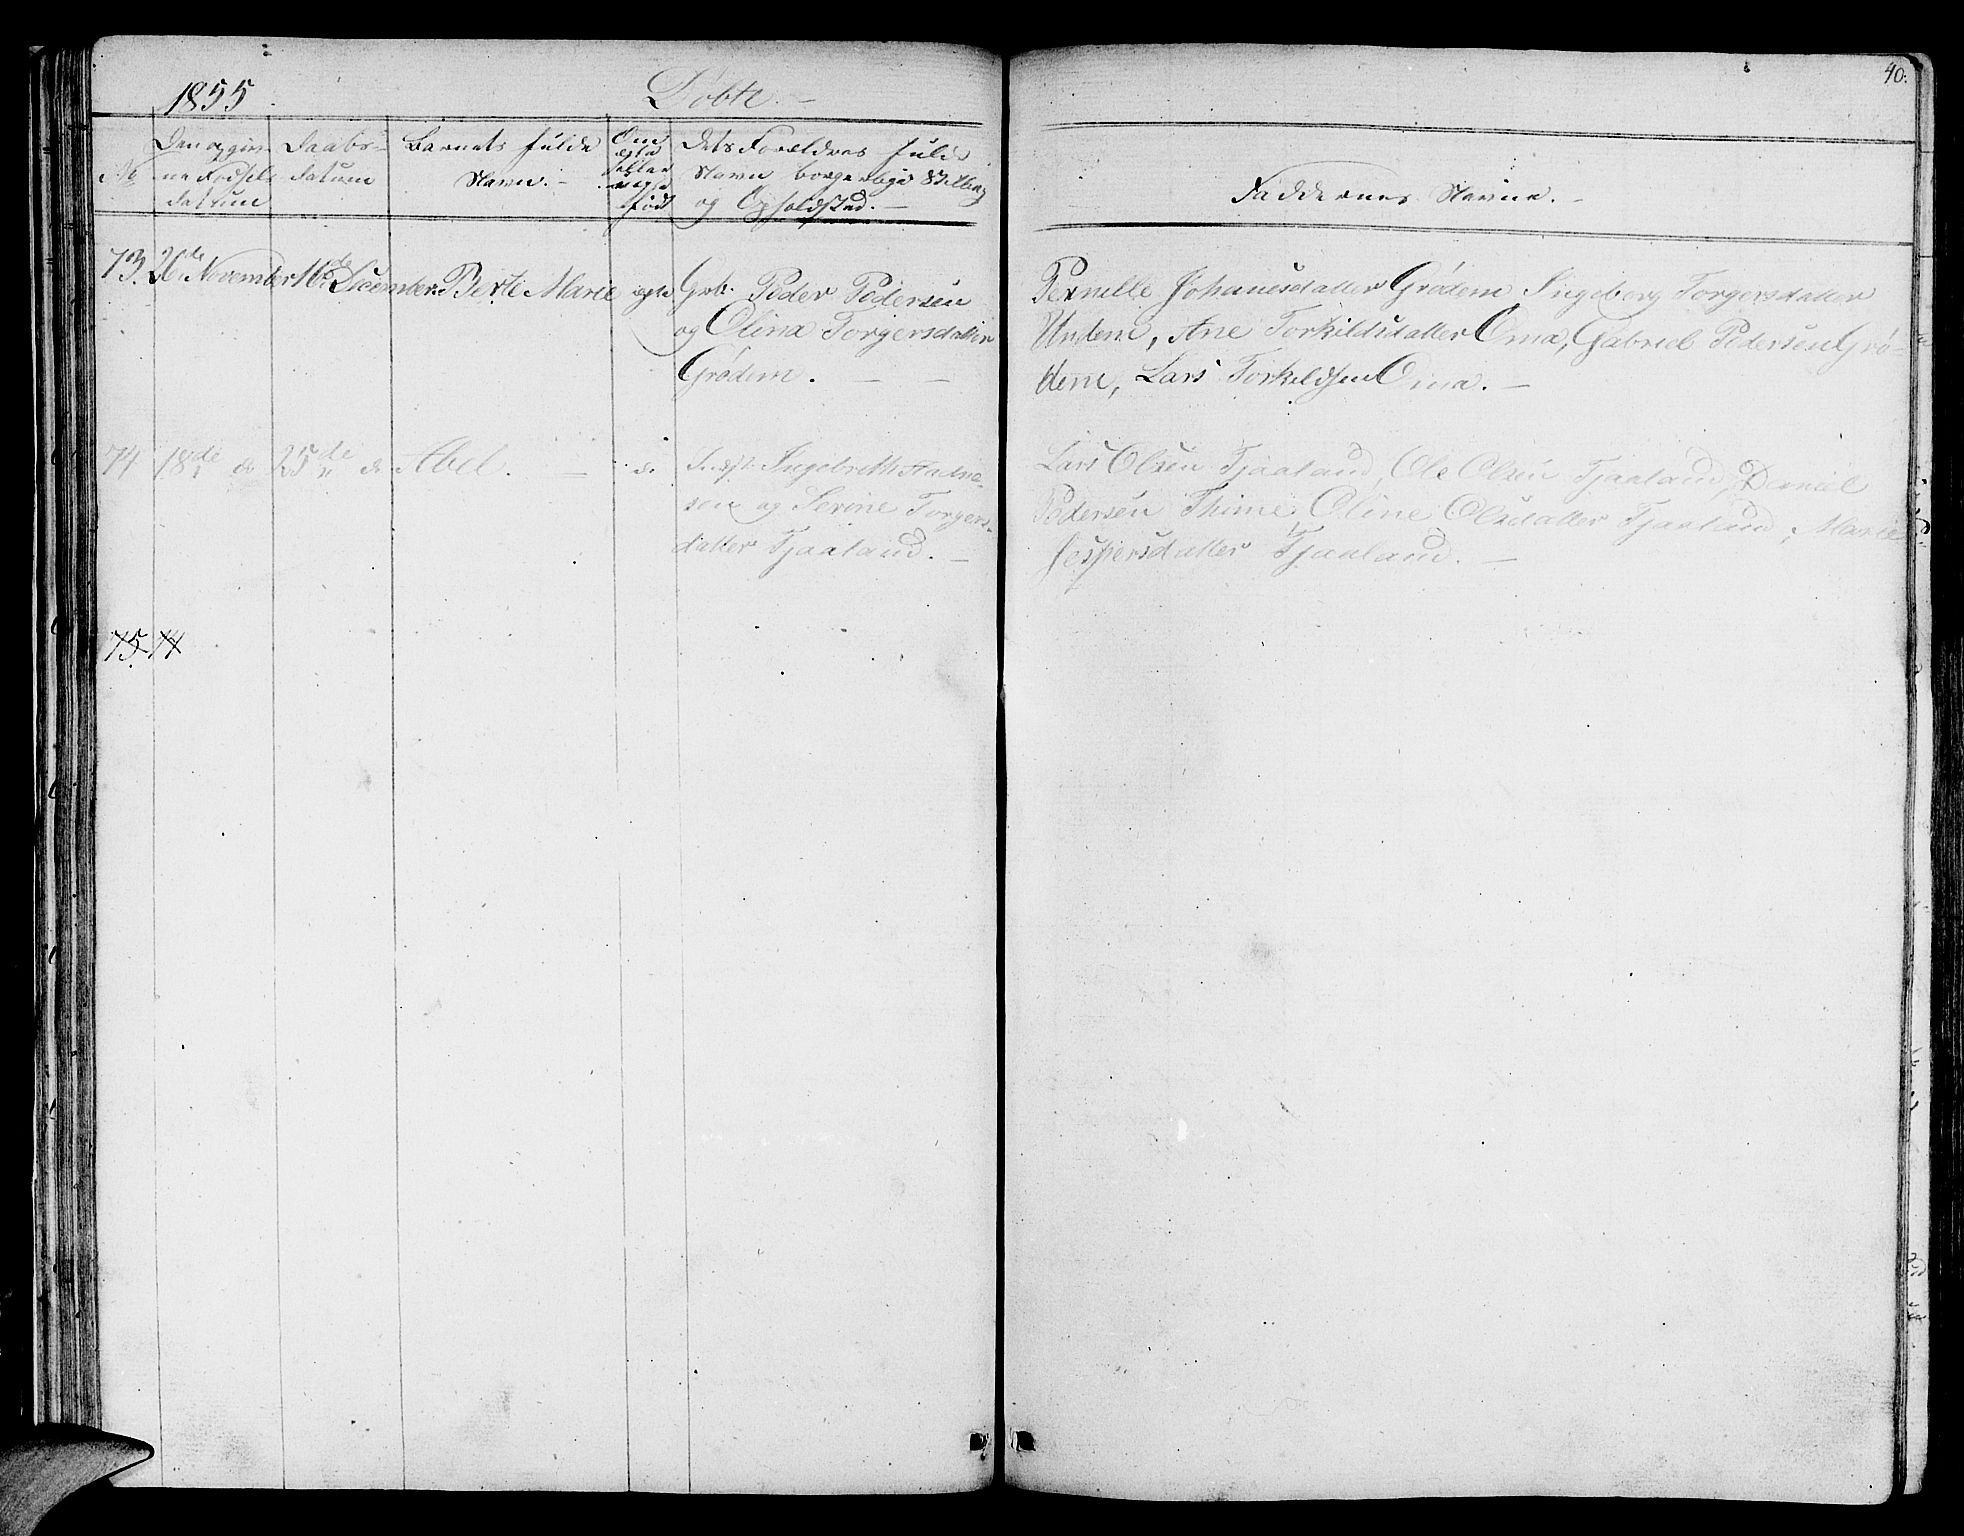 1855.
Døbte. —
40.
No
Den opgiv-
ne Fødsels
datum
Daabs-
datum
Barnets fulde
Navn. —
Om
ægte
eller
uægte
født
Dets Forældres fulde
Navn borgerlige Stilling
og Opholdsted. —
Faddernes Navne. —
73. 26de November 16de December. Berte Marie ægte Grb. Peder Pedersen
og Olina Torgersdatter
Grødem. — —
Pernille Johanesdatter Grødem Ingeborg Torgersdatter
Undem, Ane Torkildsdatter Oma, Gabriel Pedersen Grø-
dem, Lars Torkildsen Oma. —
74 18de do 25de do Abel. — do Ingebreth
sen og Serine Torgers-
datter Tjaaland. —
Lars Olsen Tjaaland, Ole Olsen Tjaaland, Daniel
Pedersen Thime Oline Olsdatter Tjaaland, Marie
Jespersdatter Tjaaland. —
75. 74